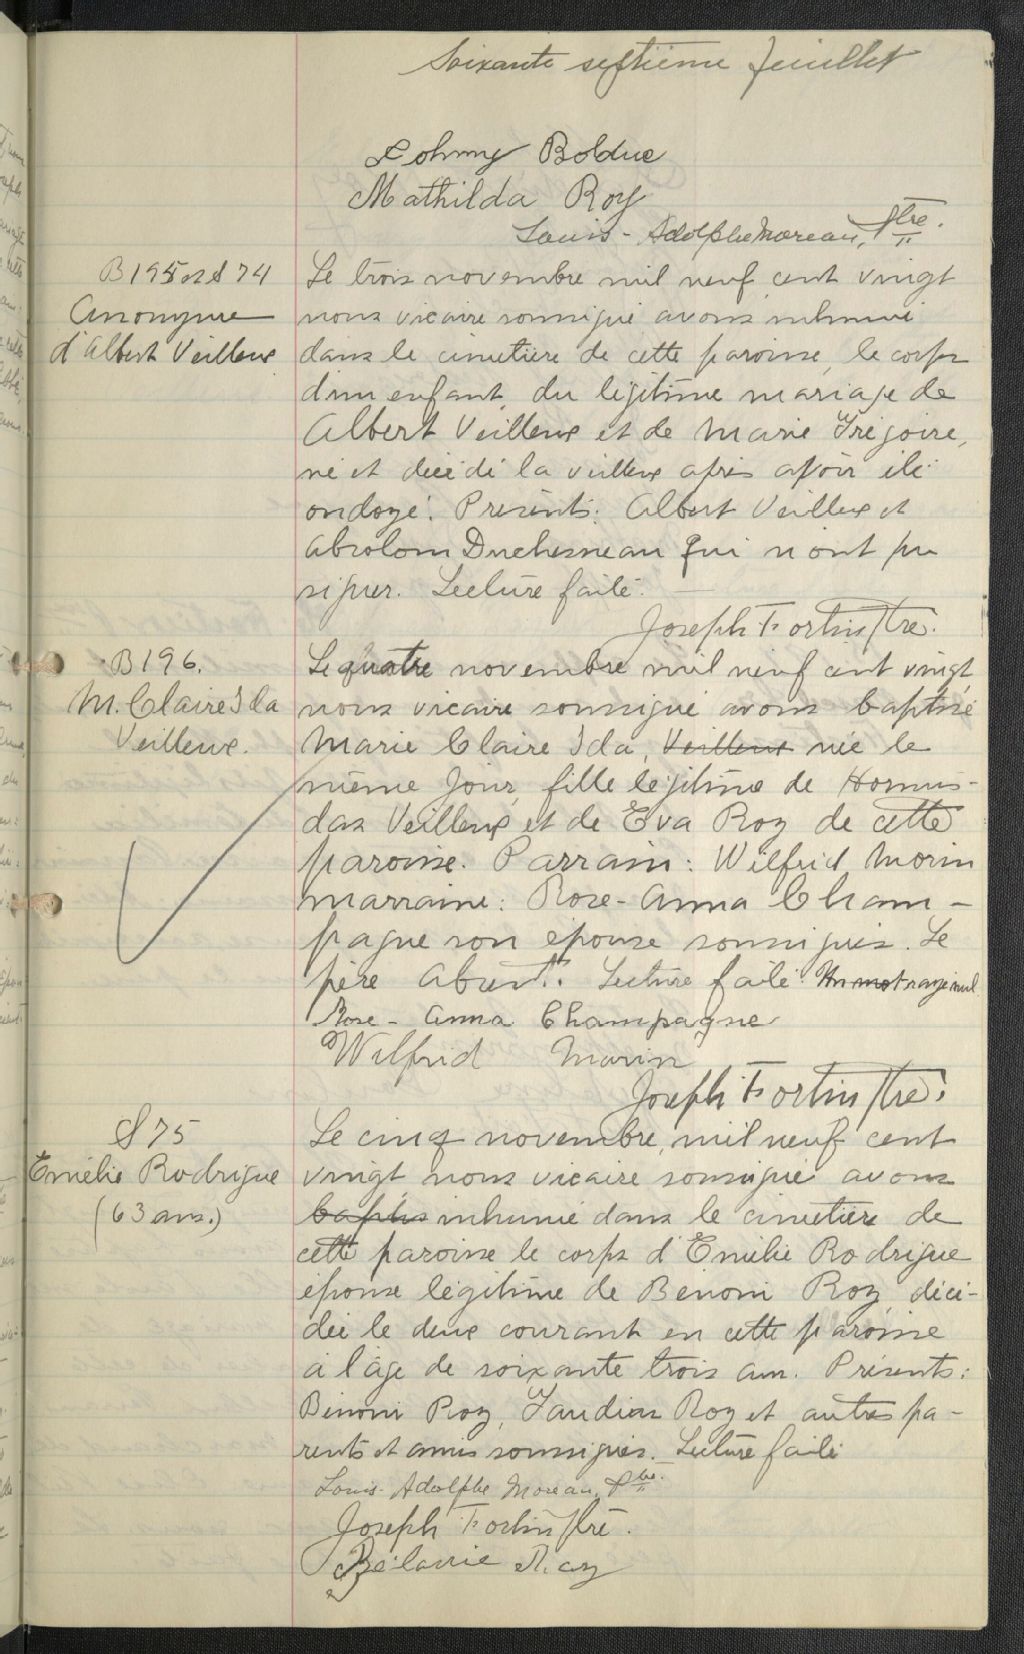 Soixante septième feuillet
Johnny Bolduc
Mathilda Roy
Louis-Adolphe Moreau, Ptre.
B195 et S 74
Anonyme
d'Albert Veilleux
Le trois novembre mil neuf cent vingt
nous vicaire soussigné avons inhumé
dans le cimetière de cette paroisse, le corps
d'un enfant, du légitime mariage de
Albert Veilleux et de Marie Grégoire,
né et décédé la veille après avoir été
ondoyé. Présents: Albert Veilleux et
Absolom Duchesneau qui n'ont pu
signer. Lecture faite.
Joseph Fortin Ptre.
B196.
M. Claire Ida
Veilleux.
Le quatre novembre mil neuf cent vingt,
nous vicaire soussigné avons baptisé
Marie Claire Ida, Veilleux née le
même jour, fille légitime de Hormis-
das Veilleux et de Eva Roy de cette
paroisse. Parrain: Wilfrid Morin
marraine: Rose-Anna Cham-
pagne son épouse soussignés. Le
père absent. Lecture faite. Un mot rayé nul
Rose-Anna Champagne
Wilfrid Morin
Joseph Fortin Ptre.
S 75
Emélie Rodrigue
(63 ans.)
Le cinq novembre, mil neuf cent
vingt nous vicaire soussigné avons
baptis inhumé dans le cimetière de
cette paroisse le corps d'Emélie Rodrigue
épouse légitime de Bénoni Roy, décé-
dée le deux courant en cette paroisse
à l'âge de soixante trois ans. Présents:
Bénoni Roy, Gaudias Roy et autres pa-
rents et amis soussignés. Lecture faite
Louis-Adolphe Moreau, Ptre.
Joseph Fortin Ptre.
Bélanie Roy